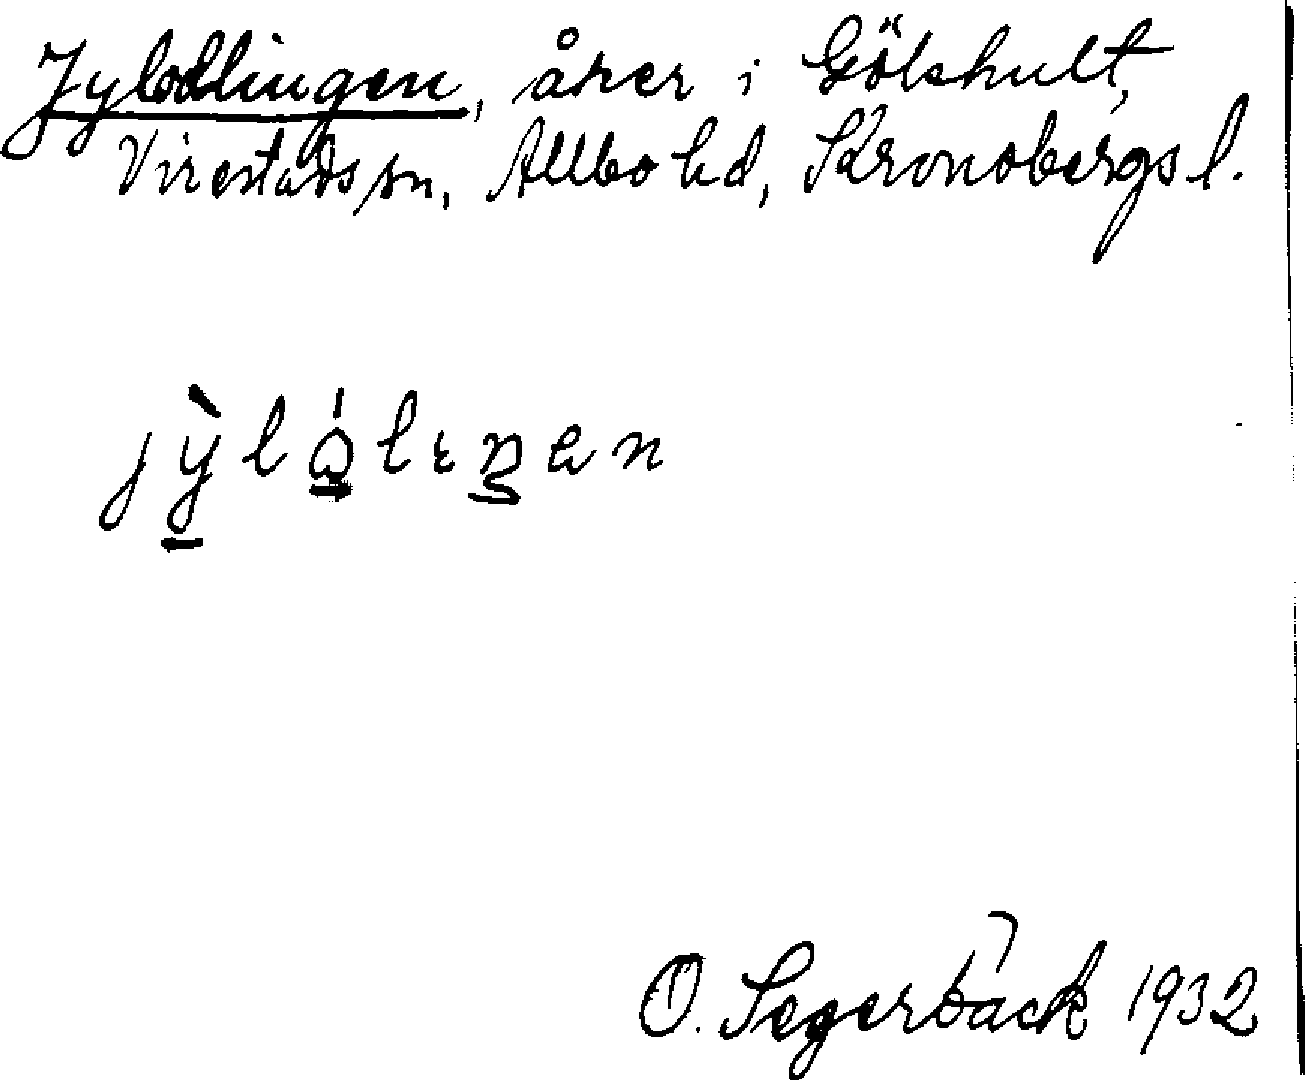 Jylodlingen, åker i Gölshult,
Virestads sn, Allbo hd, Kronobergs l.
O. Segerbäck 1932